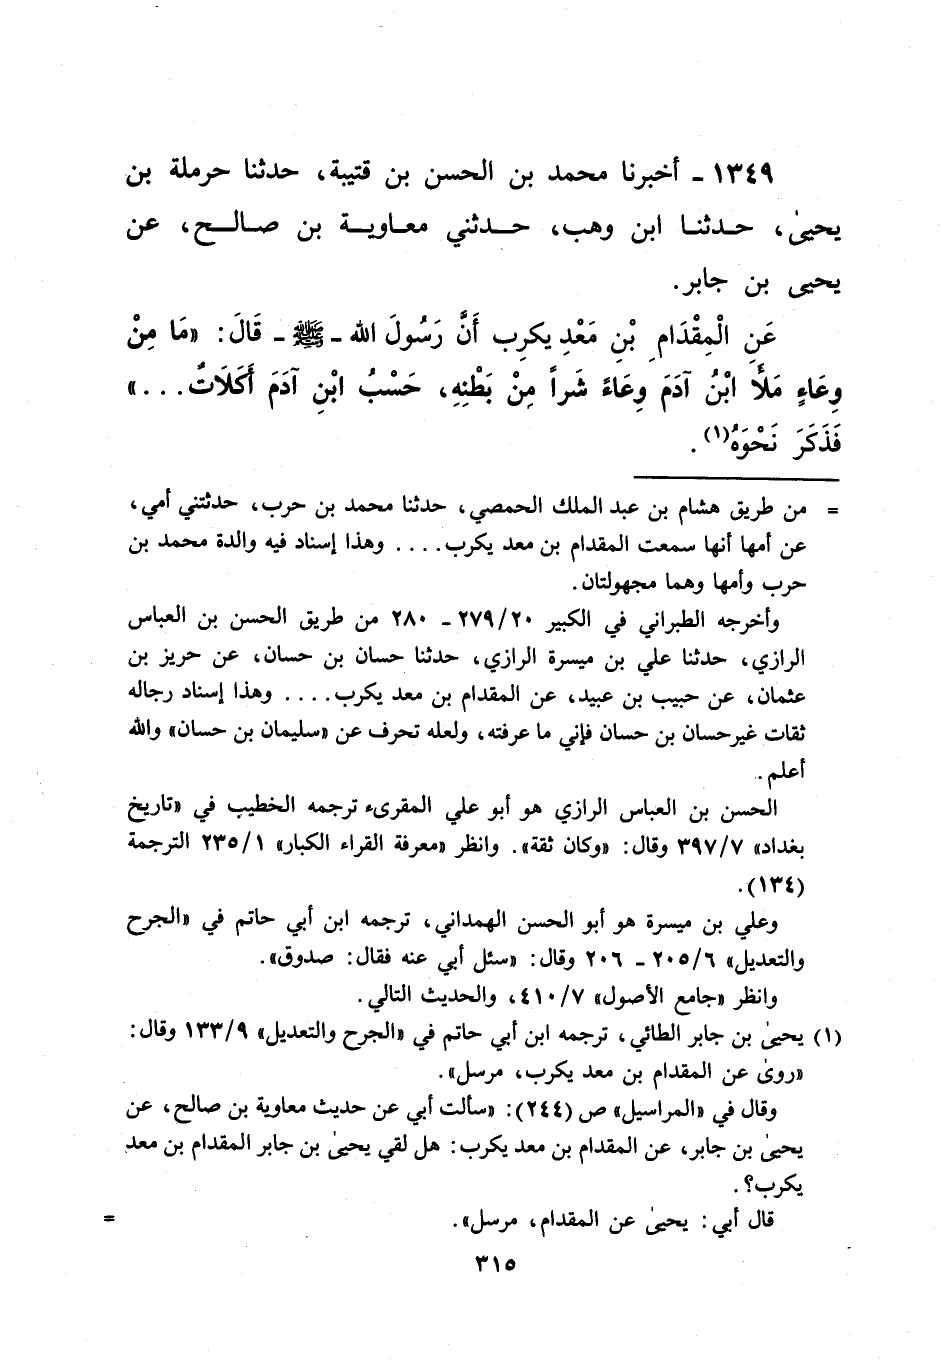 ١٣٤٩ - أخبرنا محمد بن الحسن بن قتيبة، حدثنا حرملة بن
يحيىٰ، حدثنا ابن وهب، حدثني معاوية بن صالح، عن
يحيى بن جابر.
عَنِ الْمِقْدَامِ بْنِ مَعْدِ يكرِب أَنَّ رَسُولَ الله - ﷺ - قَالَ: «مَا مِنْ
وِعَاءٍ مَلأَ ابْنُ آدَمَ وِعَاءً شَراً مِنْ بَطْنِهِ، حَسْبُ ابْنِ آدَمَ أَكَلَاتٌ...»
فَذَكَرَ نَحْوَهُ(١).
= من طريق هشام بن عبد الملك الحمصي، حدثنا محمد بن حرب، حدثتني أمي،
عن أمها أنها سمعت المقدام بن معد يكرب.... وهذا إسناد فيه والدة محمد بن
حرب وأمها وهما مجهولتان.
وأخرجه الطبراني في الكبير ٢٧٩/٢٠ - ٢٨٠ من طريق الحسن بن العباس
الرازي، حدثنا علي بن ميسرة الرازي، حدثنا حسان بن حسان، عن حريز بن
عثمان، عن حبيب بن عبيد، عن المقدام بن معد يكرب.... وهذا إسناد رجاله
ثقات غيرحسان بن حسان فإني ما عرفته، ولعله تحرف عن «سليمان بن حسان» والله
أعلم.
الحسن بن العباس الرازي هو أبو علي المقرىء ترجمه الخطيب في «تاريخ
بغداد» ٣٩٧/٧ وقال: «وكان ثقة». وانظر «معرفة القراء الكبار» ٢٣٥/١ الترجمة
(١٣٤).
وعلي بن ميسرة هو أبو الحسن الهمداني، ترجمه ابن أبي حاتم في «الجرح
والتعديل» ٢٠٥/٦ - ٢٠٦ وقال: «سئل أبي عنه فقال: صدوق».
وانظر «جامع الأصول» ٤١٠/٧، والحديث التالي.
(١) يحيىٰ بن جابر الطائي، ترجمه ابن أبي حاتم في «الجرح والتعديل» ١٣٣/٩ وقال:
«روىٰ عن المقدام بن معد يكرب، مرسل».
وقال في «المراسيل» ص (٢٤٤): «سألت أبي عن حديث معاوية بن صالح، عن
يحيىٰ بن جابر، عن المقدام بن معد يكرب: هل لقي يحيىٰ بن جابر المقدام بن معد
يكرب؟.
قال أبي: يحيىٰ عن المقدام، مرسل». =
٣١٥